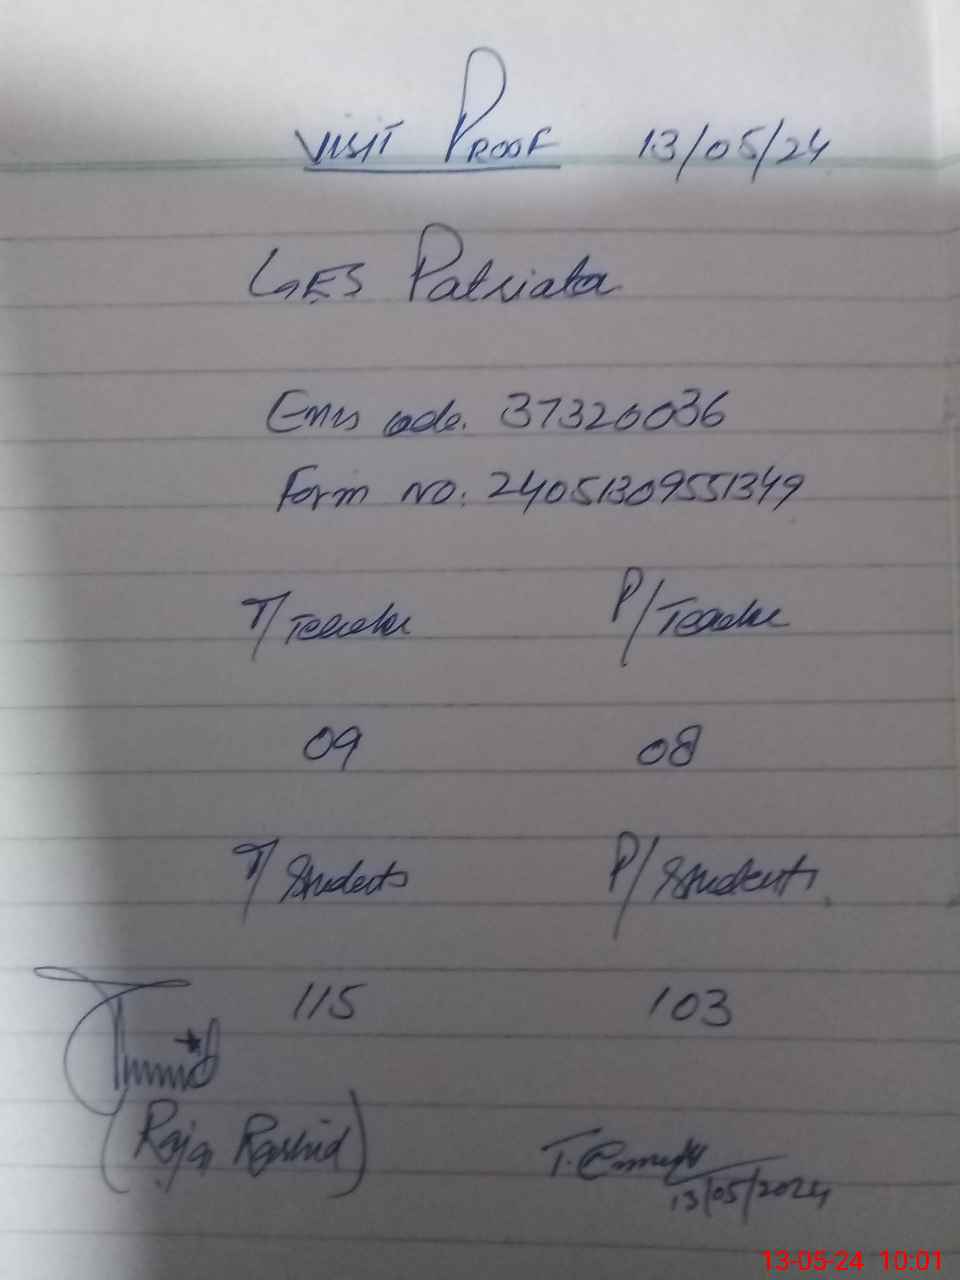 VISIT PROOF 13/05/24
GES Patriata
Emis code. 37320036
Form no. 24051309551349
T/Teacher P/Teacher
09 08
T/Students P/Students
115 103
(Raja Rashid)
13/05/2024
13-05-24 10:01